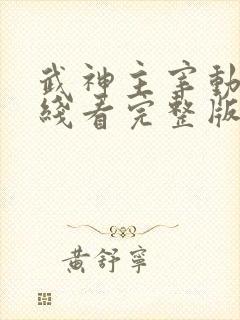 武神主宰動
綫看完整版
黃舒寧